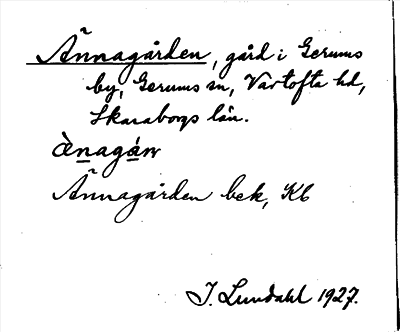 Ännagården, gård i Gerums
by, Gerums sn, Vartofta hd,
Skaraborgs län.
ànagán
Ännagården bek, Kb
I. Lundahl 1927.